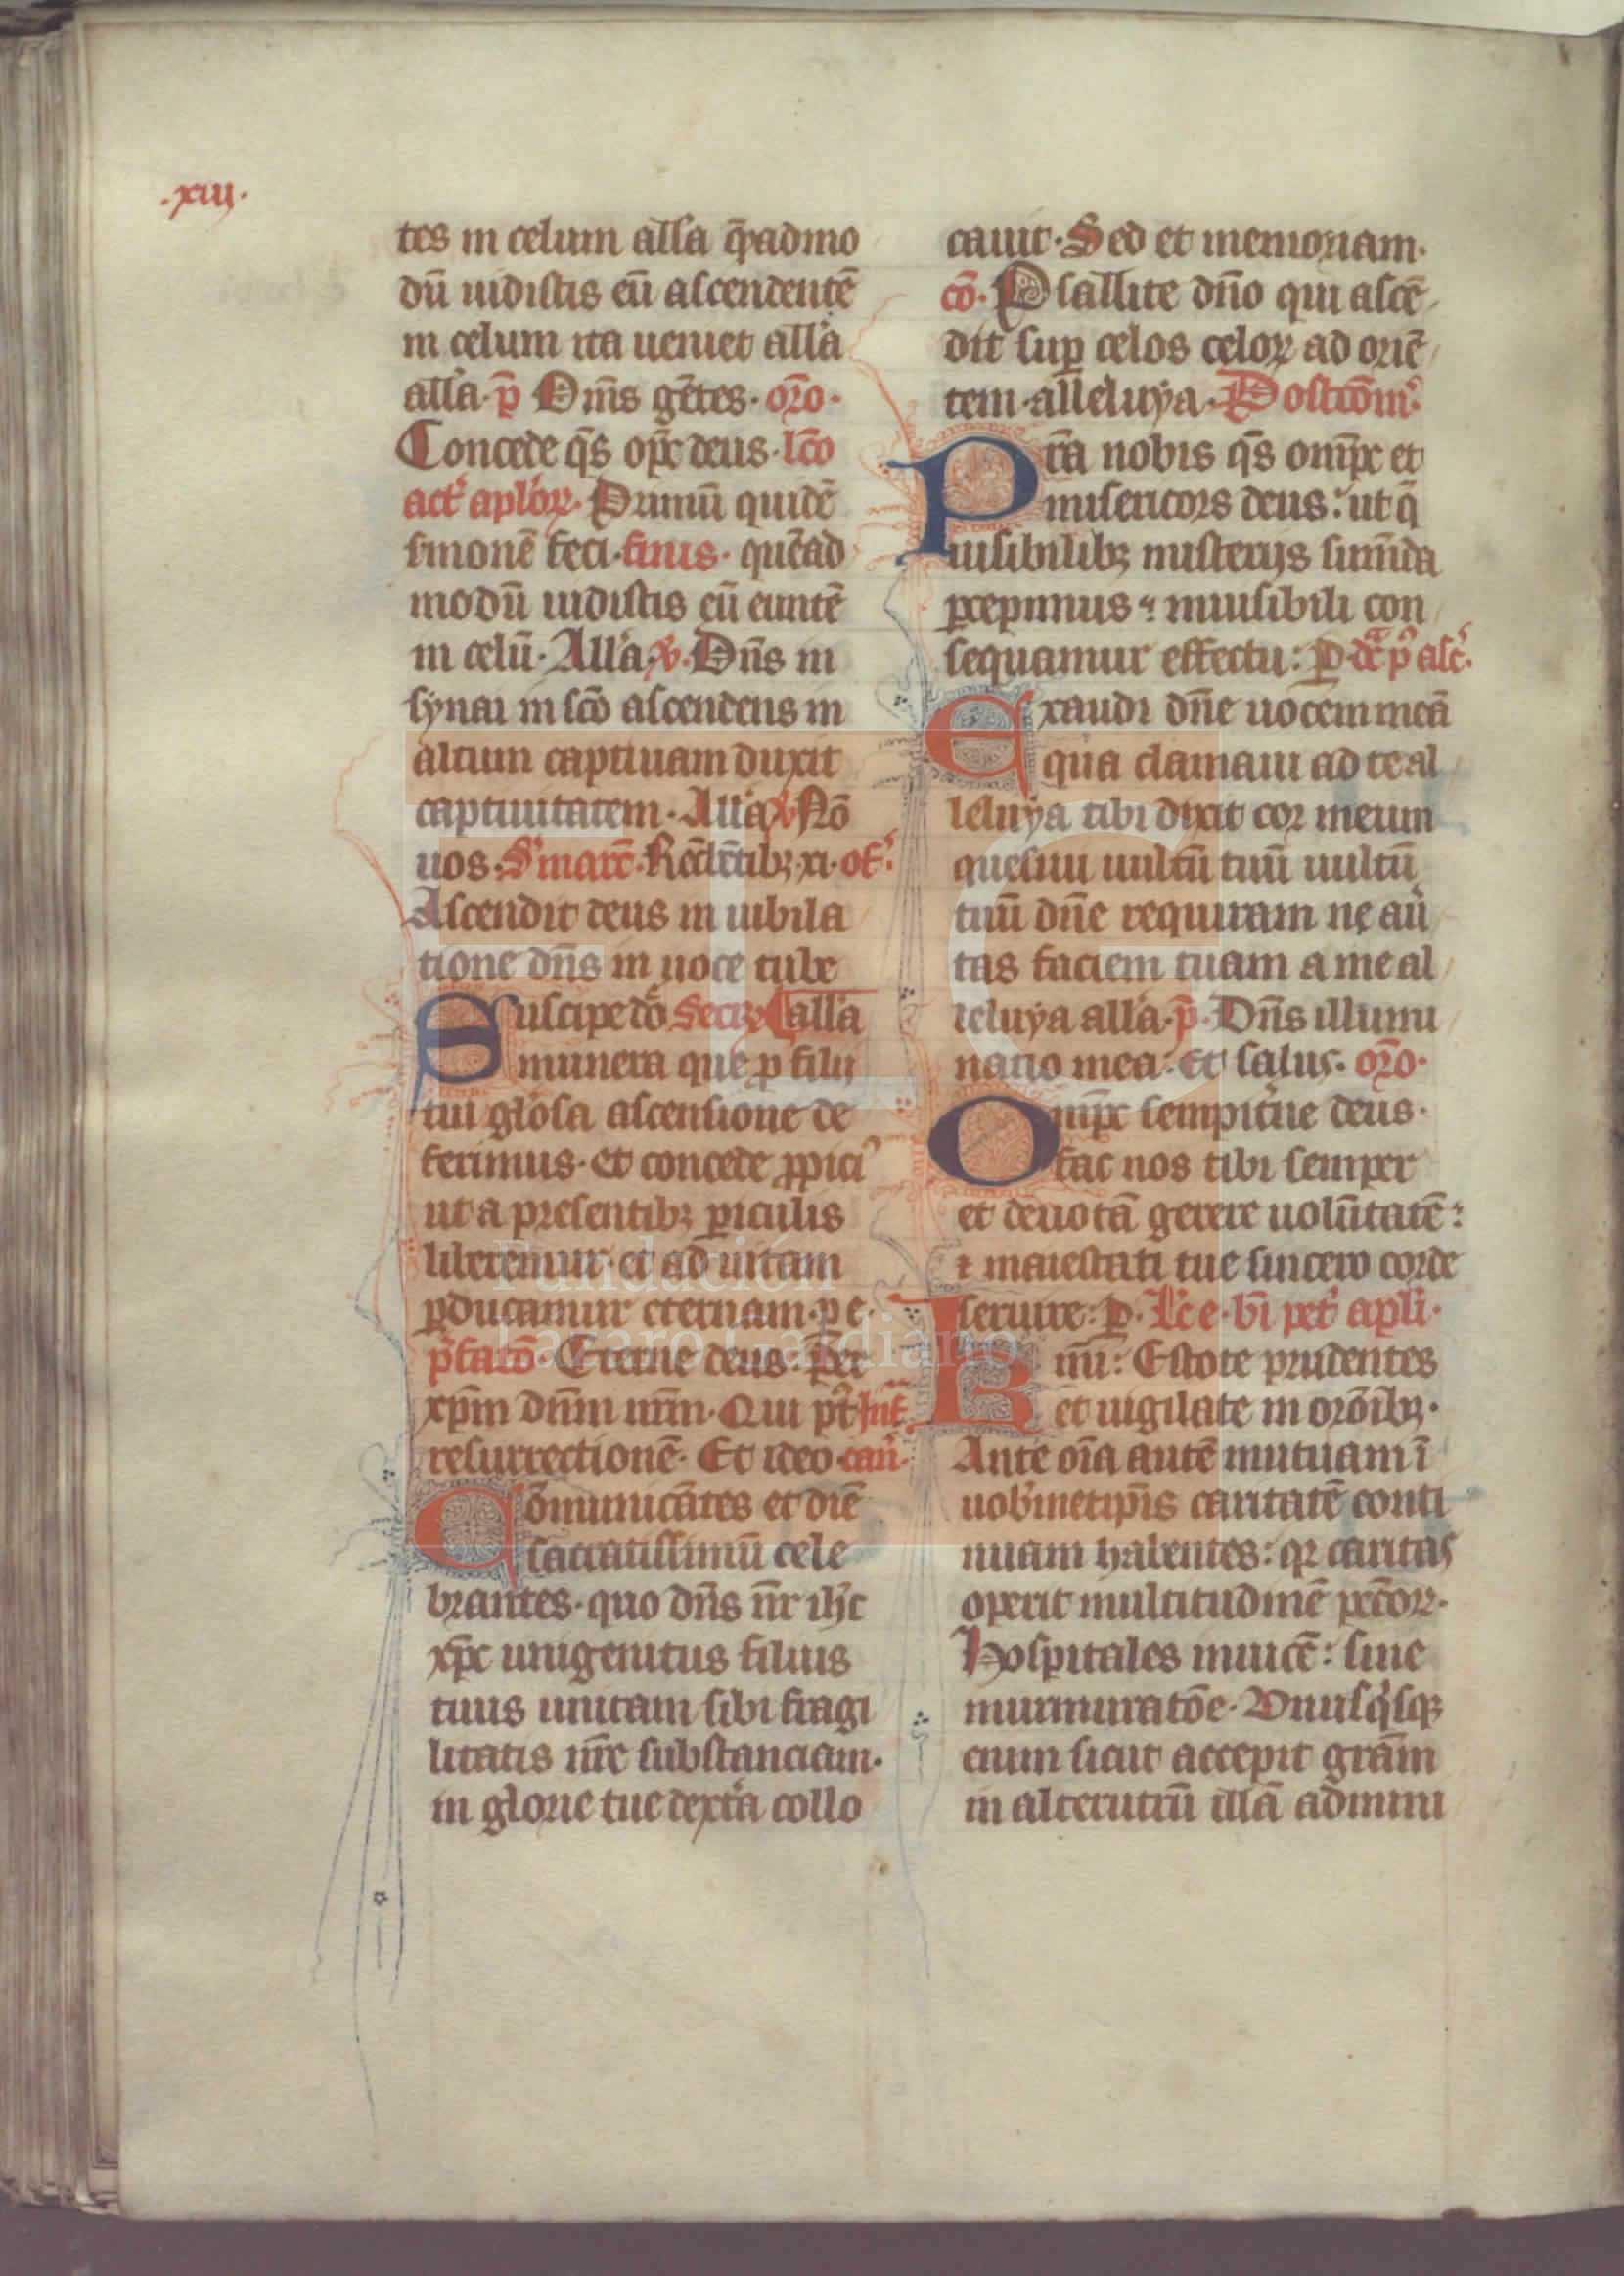 .xiij.
tes in celum alla q̄admo
dū uidistis eū ascendentē
in celum ita ueniet alla
alla. p̄ Om̄s gētes. or̄o.
Concede q̄s op̄c deus. lc̄o
act' aplōꝝ. Primū quidē
s̄monē feci. finis. quēad
modū uidistis eū euntē
in celū. Alla. v̄. Dn̄s in
synai in sc̄o ascendens in
altum captiuam duxit
captiuitatem. Alla v̄ Nō
uos. S' marc̄. Rec̄lētibꝫ xi. of̄.
Ascendit deus in iubila
tione dn̄s in uoce tube
Suscipe dō Secr̄. alla
munera que ꝓ filij
tui gl'osa ascensione de
ferimus. Et concede ꝓpici'
ut a presentibꝫ ꝑiculis
liberemur. et ad uitam
ꝑducamur eternam. p e.
p̄faco. Eterne deus. Per
xp̄m dn̄m nr̄m. Qui pt' Inf̄
resurrectionē. Et ideo can̄.
Cōmunicātes et diē
sacratissimū cele
brantes. quo dn̄s nr̄ ih̄c
xp̄c unigenitus filius
tuus unitam sibi fragi
litatis nr̄e substanciam.
in glorie tue dext̄a collo
cauit. Sed et memoriam.
cō. Psallite dn̄o qui ascē
dit suꝑ celos celoꝝ ad oriē
tem. alleluya. Postcōm̄.
Pr̄a nobis q̄s om̄pc et
misericors deus: ut q̄
uisibilibꝫ misterijs sum̄da
ꝑcepimus: inuisibili con
sequamur effectu: P. dc̄a p' asc̄.
Exaudi dn̄e uocem meā
qua clamaui ad te al
leluya tibi dixit cor meum
quesiui uultū tuū uultū
tuū dn̄e requiram ne au'
tas faciem tuam a me al
leluya alla. p̄. Dn̄s illumi
natio mea: et salus. or̄o.
Om̄pc sempit'ne deus.
fac nos tibi semper
et deuotā gerere uolūtatē:
⁊ maiestati tue sincero corde
seruire: P. Lc̄ e. bī pet' apli.
Kmī: Estote prudentes
et uigilate in orōibꝫ.
Ante oīa autē mutuam ī
uob'metip̄is caritatē conti
nuam habentes: qꝛ caritas
operit multitudinē pec̄oꝝ.
Hospitales inuicē: sine
murmuratōe. Vnusq'sqꝫ
cium sicut accepit grām
in alterutrū illā admini
Fundación
Lázaro Galdiano